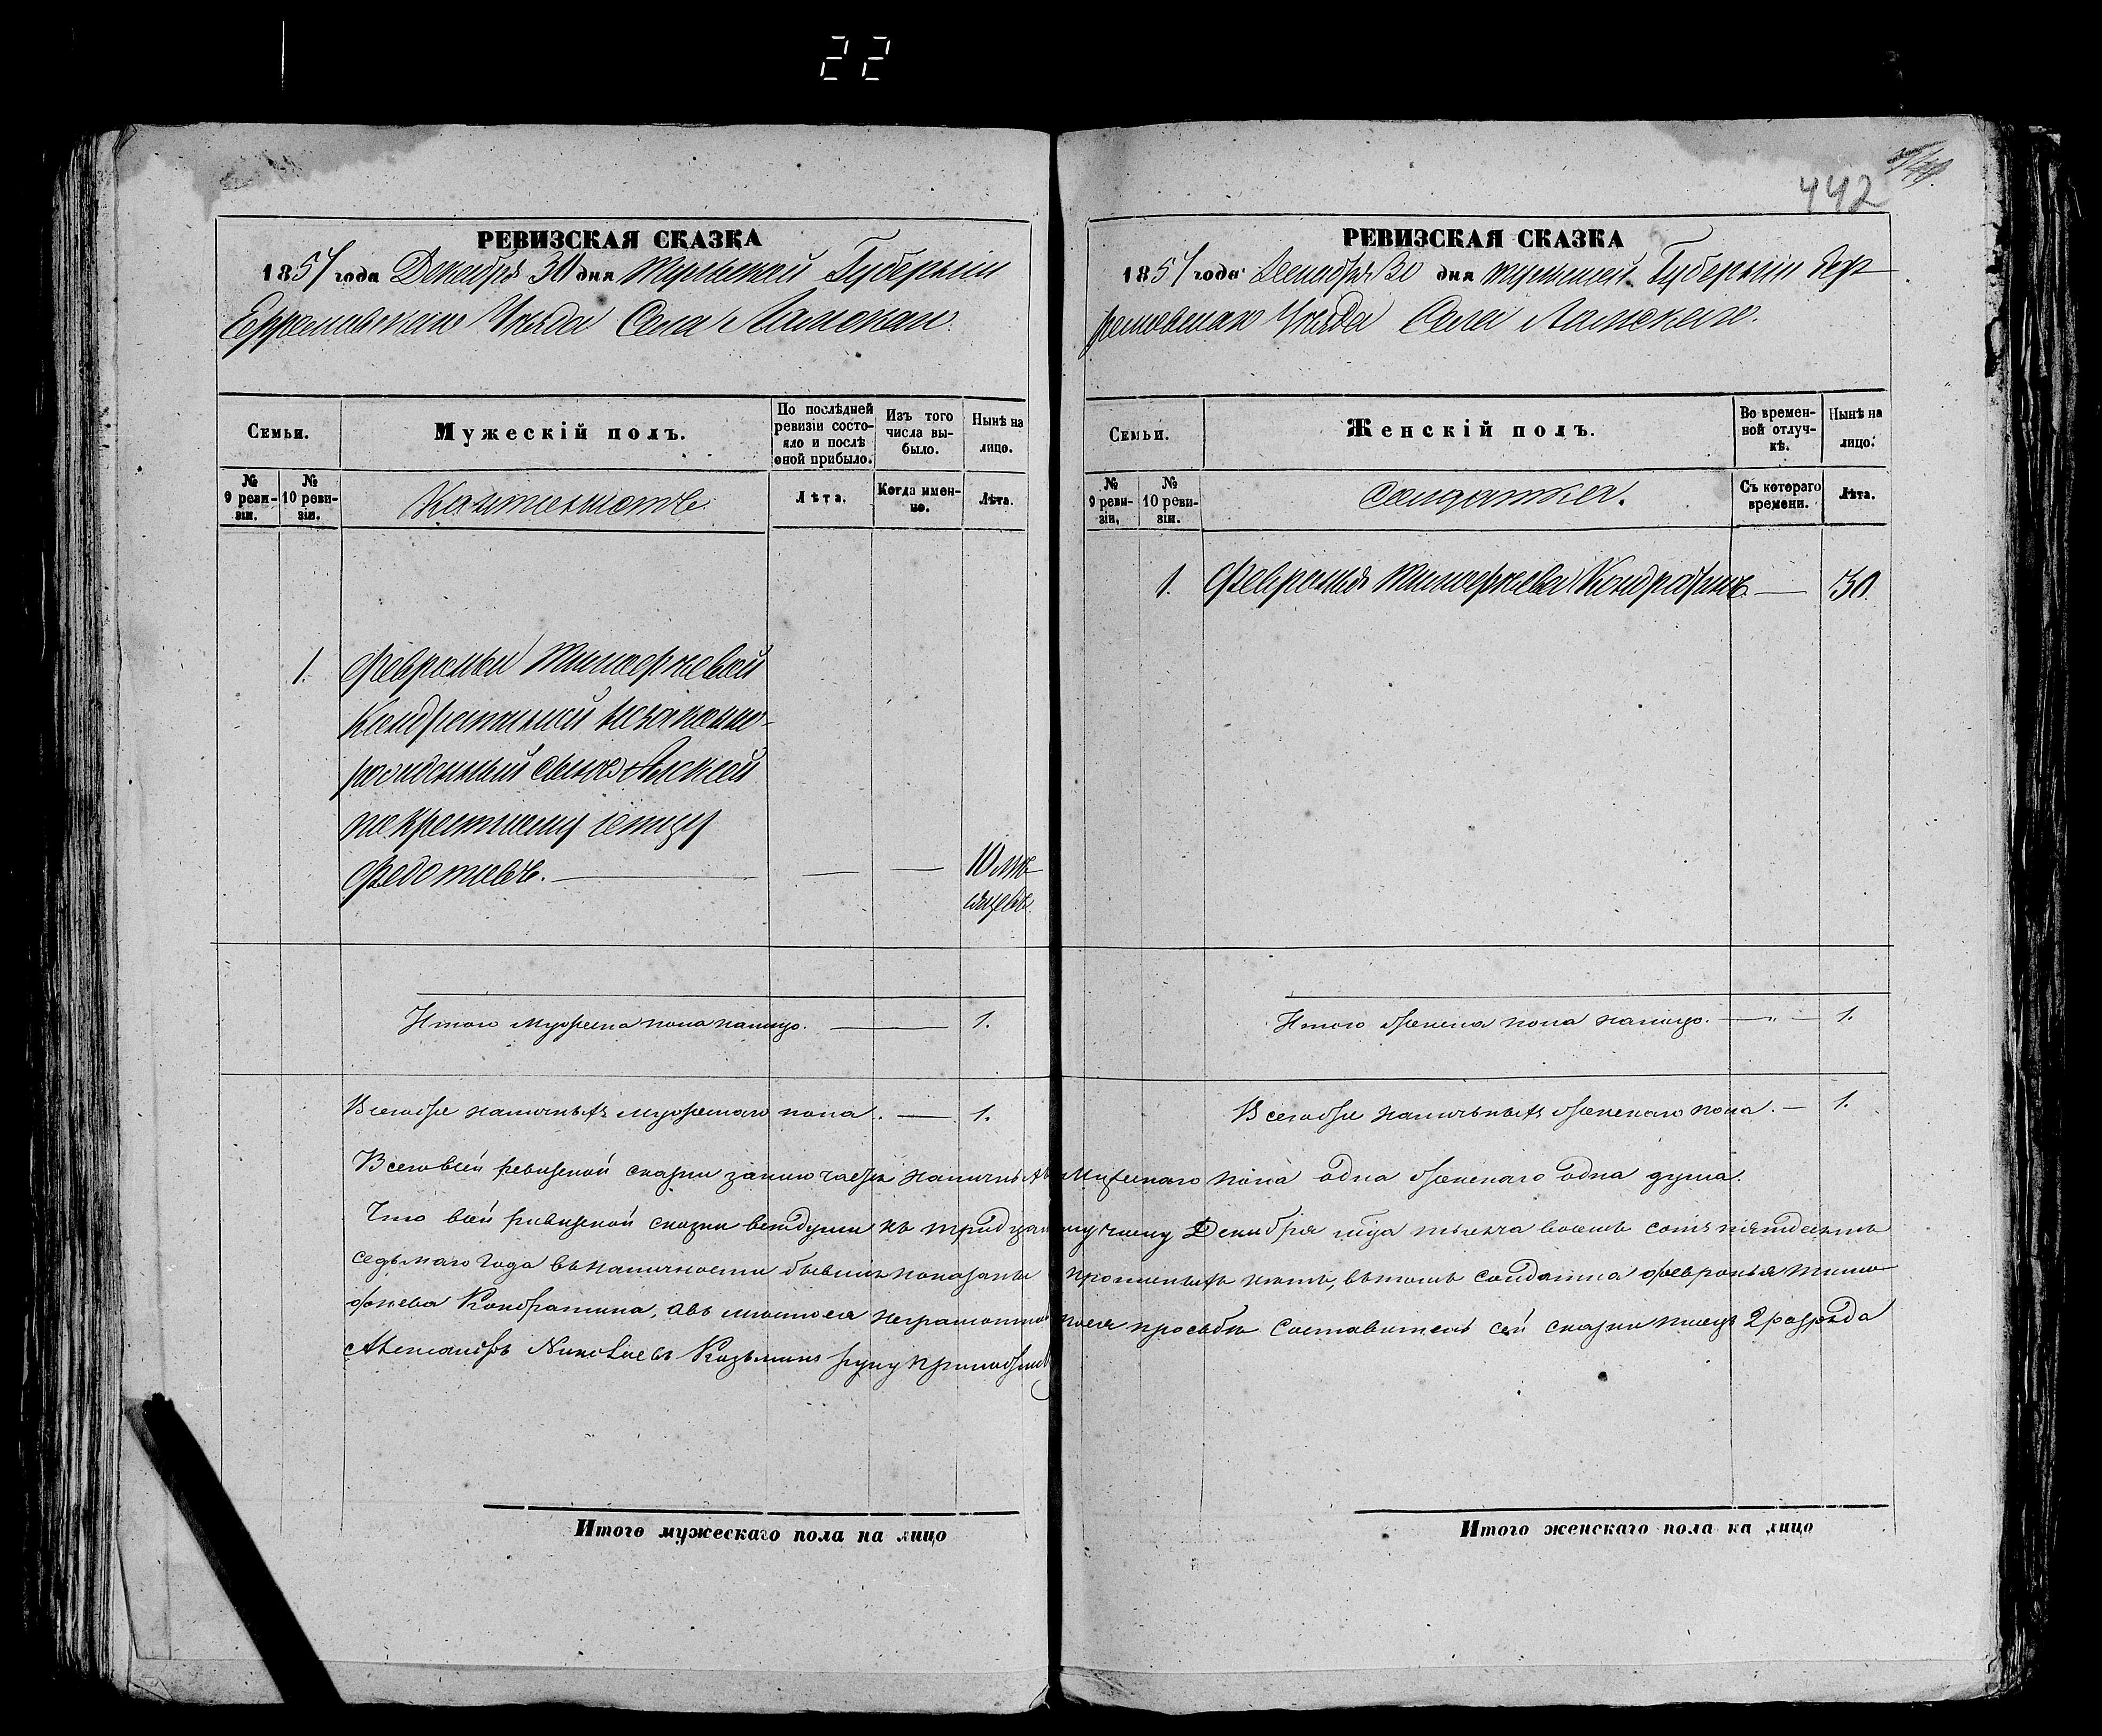 22
442
РЕВИЗСКАЯ СКАЗКА
1857 года Декабря 30 дня Тульской Губерніи
Ефремовскаго Уѣзда Села Ламскаго.
Семьи.
Мужескій полъ.
По послѣдней ревизіи состояло и послѣ оной прибыло.
Изъ того числа выбыло.
Нынѣ на лицо.
№ 9 ревизіи.
№ 10 ревизіи.
Кантонистъ
Лѣта.
Когда именно.
Лѣта.
1. Февроньи Тимофѣевой
Кондратиной незаконно-
рожденный сынъ Алексей
по крестному отцу
Федотовъ. — — — 10 мѣ-
сяцевъ.
Итого мужеска пола налицо. — 1.
Всегоже наличныхъ мужескаго пола. — 1.
РЕВИЗСКАЯ СКАЗКА
1857 года Декабря 30 дня Тульской Губерніи Еф-
ремовскаго Уѣзда Села Ламскаго.
Семьи.
Женскій полъ.
Во временной отлучкѣ.
Нынѣ на лицо.
№ 9 ревизіи.
№ 10 ревизіи.
Солдатка.
Съ котораго времени.
Лѣта.
1. Февронья Тимофѣева Кондратина — 30.
Итого женска пола налицо. — " — 1.
Всегоже наличныхъ женскаго пола. — 1.
Всего в сей ревизской сказки заключается наличныхъ мужескаго пола одна женскаго одна душа.
Что в сей ревизской сказки всѣ души къ тридцатому числу Декабря м-ца тысяча восемь сотъ пятьдесятъ
седьмаго года въ наличности бывшія показаны и прописныхъ нѣтъ, въ томъ солдатка Февронья Тимо-
фѣева Кондратина, а въ мѣсто ея неграмотной по ея просьбѣ Составитель сей сказки писецъ 2 разряда
Александръ Кузьминъ руку приложилъ
Итого мужескаго пола на лицо
Итого женскаго пола на лицо